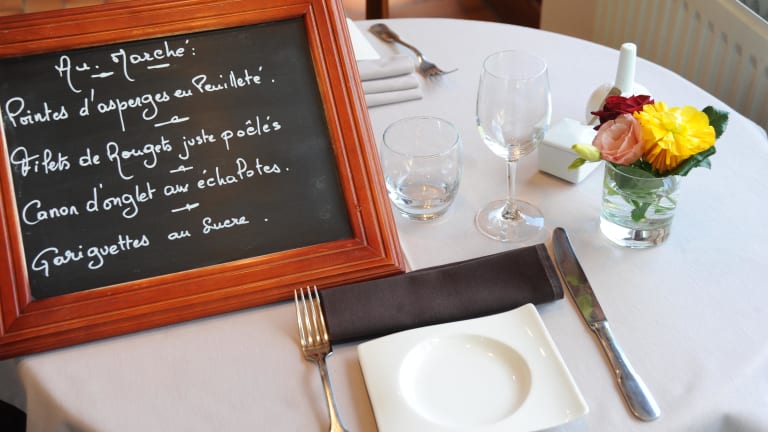 Au Marché:
Pointes d'asperges en Feuilleté.
Filets de Rougets juste poêlés
Canon d'onglet aux échalotes.
Gariguettes au Sucre.